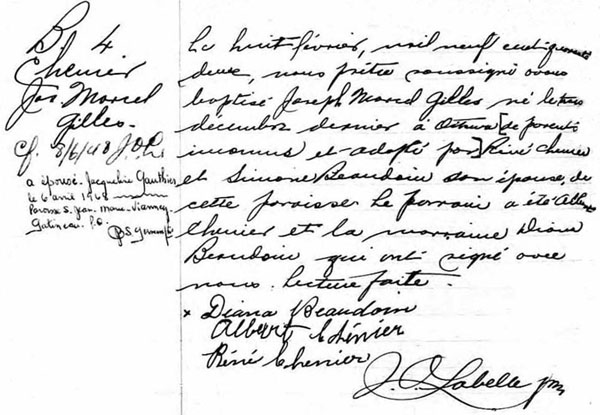 B 4
Chenier
Jos Marcel
Gilles.
Cf. 8/6/48 J.O.L.
a épousé Jacqueline Gauthier
le 6 avril
Paroisse S. Jean-Marie-Vianney
Gatineau. P.Q.
Le huit février, mil neuf cent quarante
deux, nous prêtre soussigné avons
baptisé Joseph Marcel Gilles né le
décembre dernier à Ottawa [de parents
inconnus et adopté par] Réné Chenier
et Simone Beaudoin son épouse, de
cette paroisse. Le parrain a été Albert
Chenier et la marraine Diana
Beaudoin qui ont signé avec
nous. Lecture faite.
x Diana Beaudoin
Albert Chénier
Réné Chenier
J. O. Labelle ptre